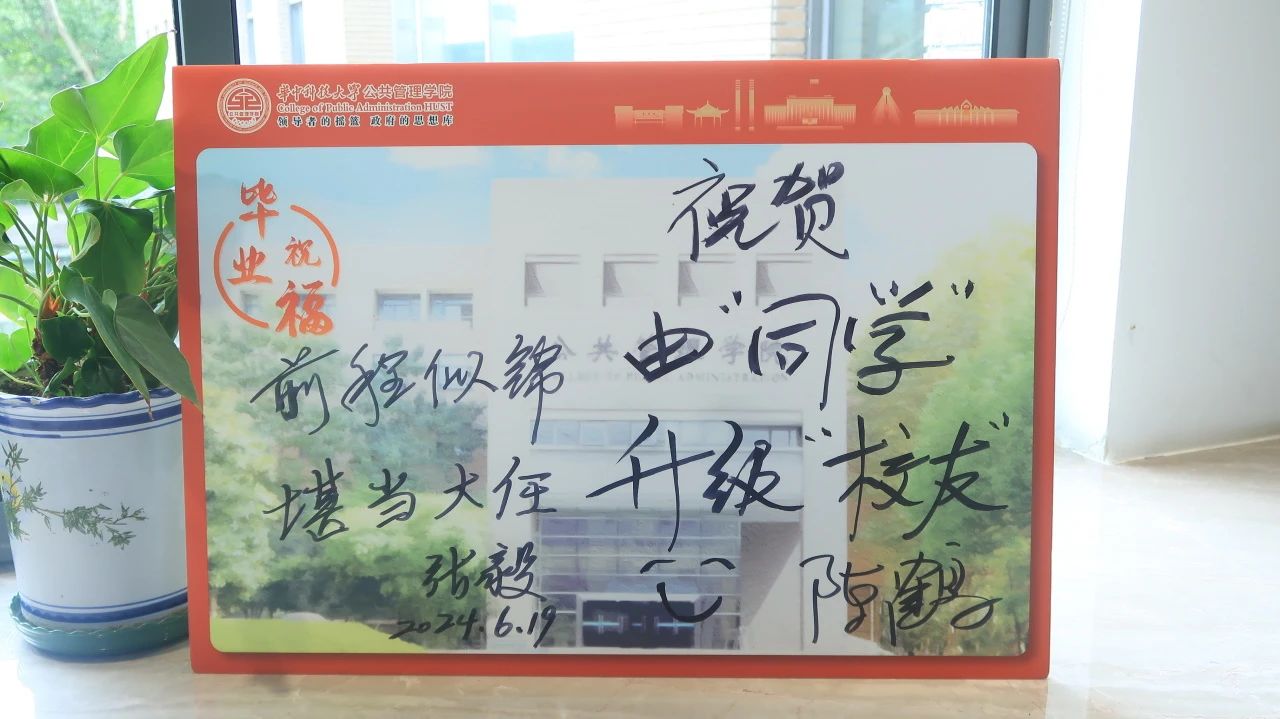 华中科技大学公共管理学院
College of Public Administration HUST
领导者的摇篮 政府的思想库
毕业祝福
前程似锦
堪当大任
张毅
2024.6.19
祝贺
由"同学"
升级"校友"
陈鹤